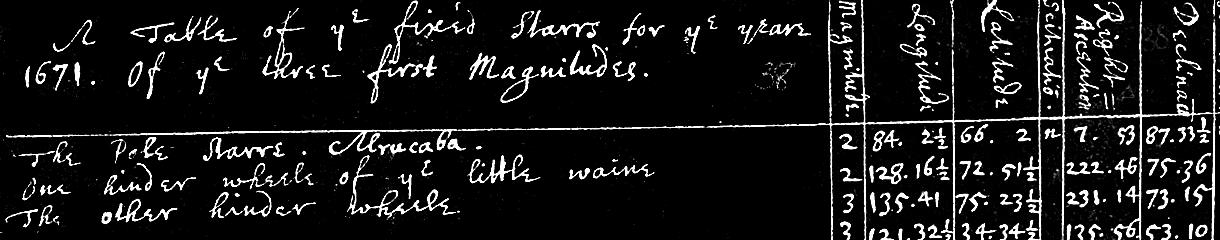 A Table of yᵉ fixed Starrs for yᵉ yeare
1671. Of yᵉ three first Magnitudes.
38
Magnitude. Longitude Latitude Scituatiō. Right = Ascention Declinat
The Pole Starre. Alrucaba. 2 84. 2½ 66. 2 n 7. 53 87.33½
One hinder wheele of yᵉ little waine 2 128.16½ 72. 51½ 222.46 75.36
The other hinder wheele 3 135.41 75. 23½ 231. 14 73. 15
3 121.32½ 34.34½ 135.56 53. 10